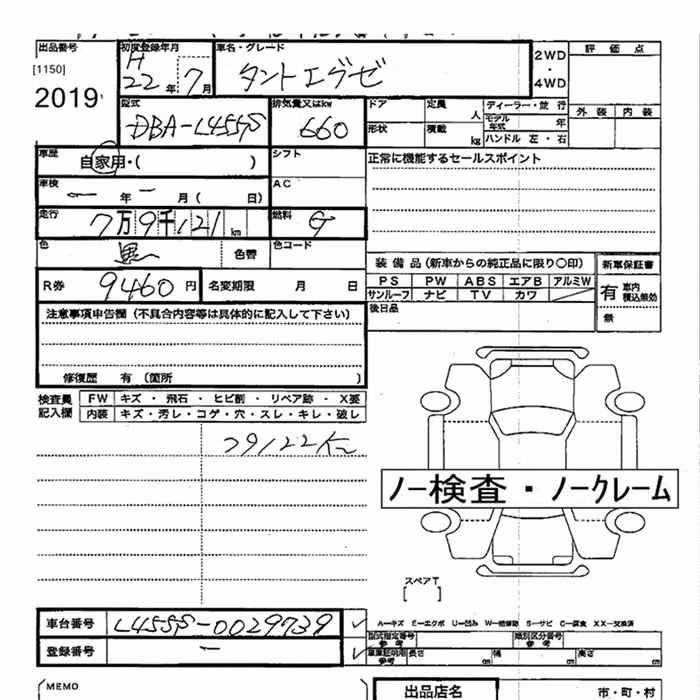 出品番号 初度登録年月 車名・グレード 評価点
[1150] H 22年 7月 タントエグゼ 2WD・4WD
2019 外装 内装
型式 排気量又はkw ドア 定員 人 ディーラー・並行
DBA-L455S 660 形状 積載 kg モデル年式 年
ハンドル 左・右
車歴 自家用・( ) シフト 正常に機能するセールスポイント
車検 ー 年 ー 月( 日) AC
走行 7万9千121km 燃料 G
色 黒 色替 色コード
装備品(新車からの純正品に限り○印) 新車保証書
R券 9460円 名変期限 月 日
PS PW ABS エアB アルミW 有 車内積込無効
サンルーフ ナビ TV カワ
注意事項申告欄(不具合内容等は具体的に記入して下さい) 後日品 無
修復歴 有(箇所 )
検査員記入欄 FW キズ・飛石・ヒビ割・リペア跡・X要
内装 キズ・汚レ・コゲ・穴・スレ・キレ・破レ
79122Km
ノー検査・ノークレーム
スペアT
[ ]
車台番号 L455S-0029739
A―キズ E―エクボ U―凹み W―補修跡 S―サビ C―腐食 XX―交換済
型式指定番号 参考 類別区分番号 参考
登録番号 ー 車庫証明用 参考 長さ cm 幅 cm 高さ cm
MEMO 出品店名 市・町・村